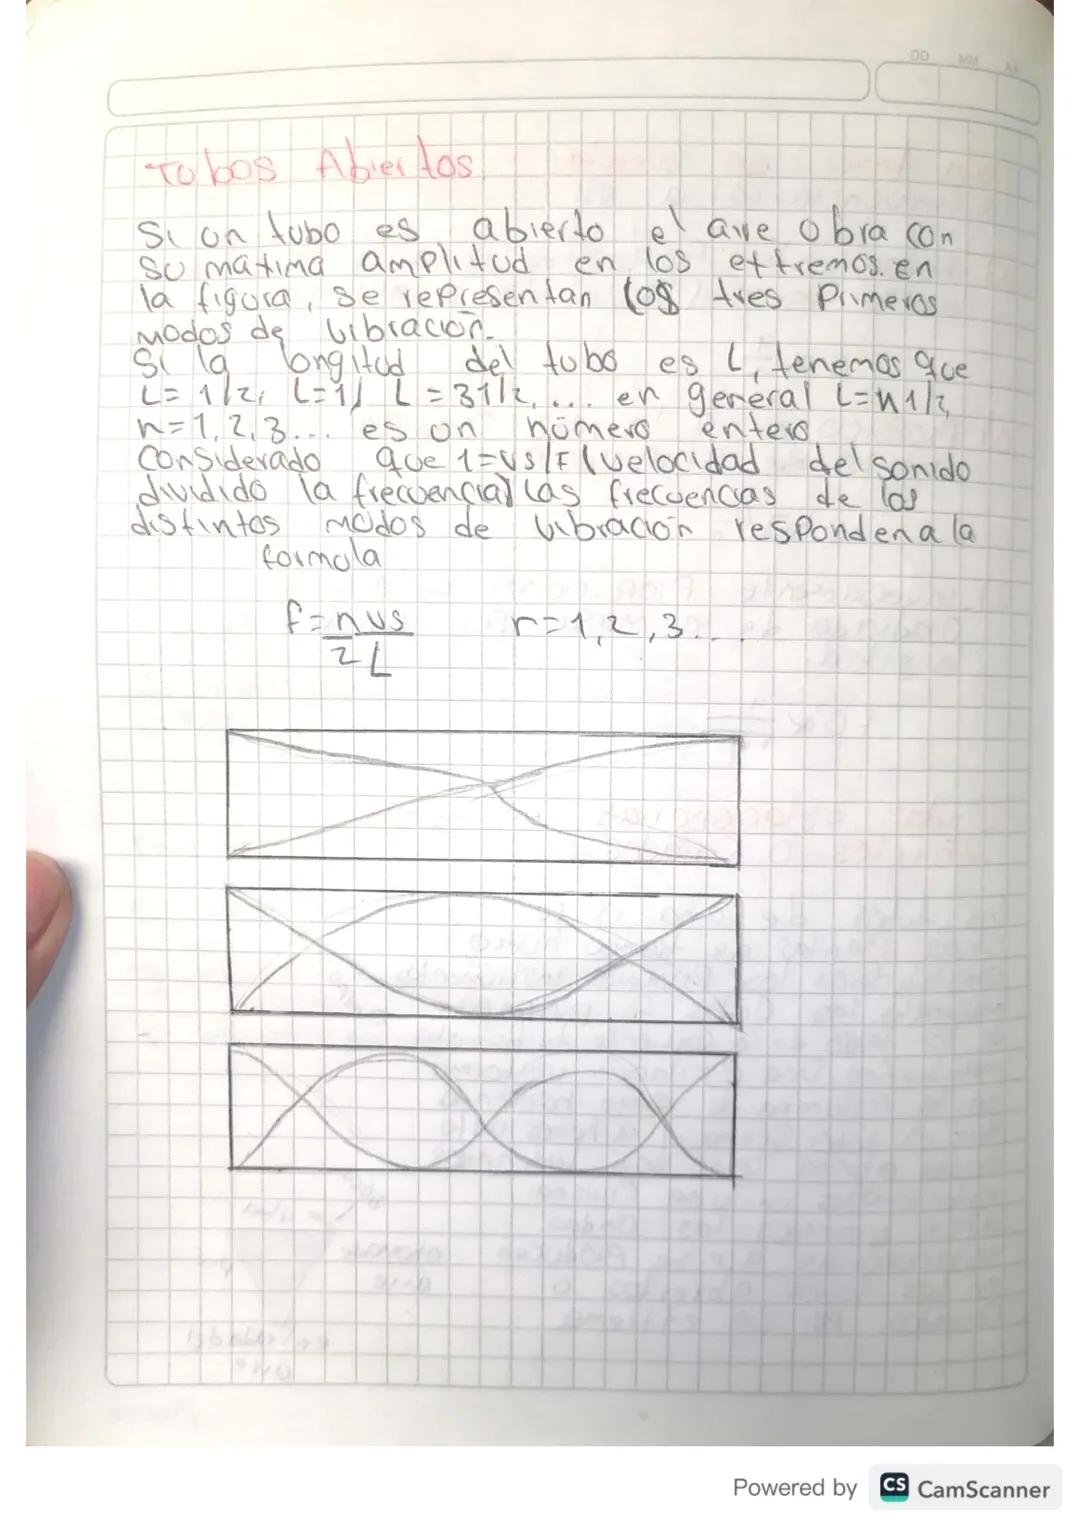 DD MM AA
Tubos Abiertos
Si un tubo es abierto el aire obra con
su matima amplitud en los ettremos. en
la figura, se representan los tres Primeros
modos de vibración.
Si la longitud del tubo es L, tenemos que
L= 1/2, L=1, L=31/2, ... en general L=n1/2,
n=1,2,3... es un número entero
considerado que 1=vs/F (velocidad del sonido
dividido la frecuencia) las frecuencias de los
distintos modos de vibración responden a la
formula
f = n vs / 2 L r=1,2,3....
Powered by CS CamScanner